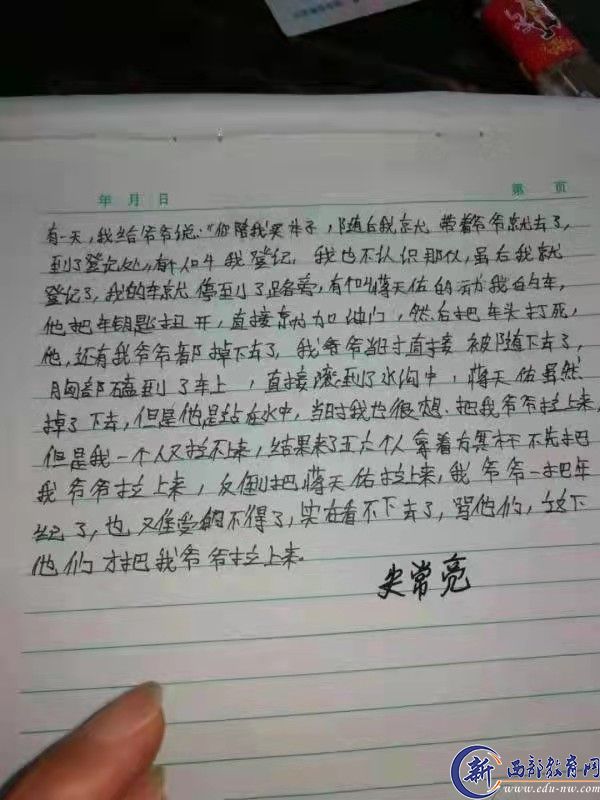 年 月 日
第 页
有一天,我给爷爷说:"你陪我买本子,随后我就带着爷爷就去了,
到了登记处,有个叫我登记,我也不认识那人,最后我就
登记了,我的车就停到了路旁,有个叫蒋天佑的动我的车,
他把车钥匙扭开,直接就加油门,然后把车头打死,
他,还有我爷爷都掉下去了,我爷爷当时直接被随下去了,
胸部磕到了车上,直接滚到了水沟中,蒋天佑虽然
掉了下去,但是他是站在水中,当时我也很想把我爷爷拉上来,
但是我一个人又拉不来,结果来了五六个人拿着方木不先把
我爷爷拉上来,反倒把蒋天佑拉上来,我爷爷一把年
纪了,也又难受的不得了,实在看不下去了,骂他们,这下
他们才把我爷爷拉上来.
史常亮
新 西部教育网
www.edu-nw.com